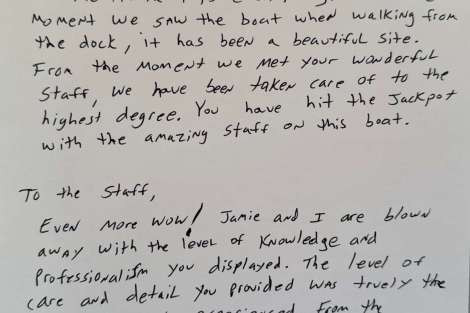 Moment we saw the boat when walking from
the dock, it has been a beautiful site.
From the moment we met your wonderful
Staff, we have been taken care of to the
highest degree. You have hit the Jackpot
with the amazing staff on this boat.
To the Staff,
Even more wow! Jamie and I are blown
away with the level of knowledge and
Professionalism you displayed. The level of
care and detail you provided was truely the
From the